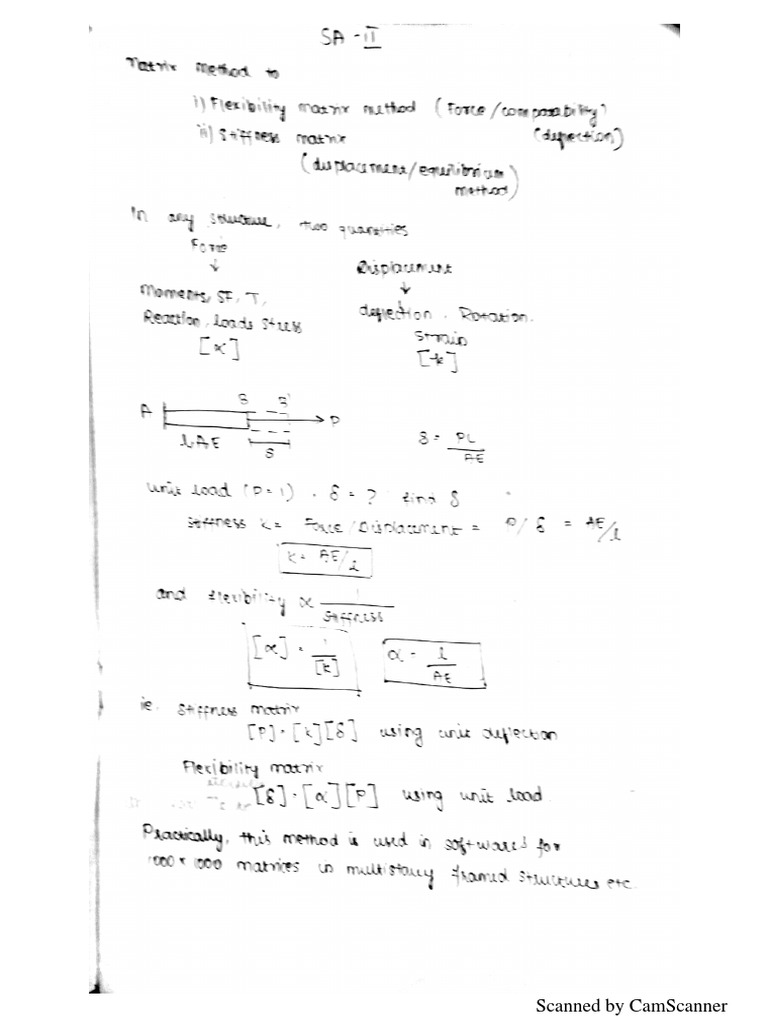 SA - II
Matrix Method to
i) Flexibility matrix method (Force/comparability)
ii) Stiffness matrix (deflection)
(displacement/equilibrium
method)
In any structure, two quantities
Force
↓
Displacement
↓
Moments, SF, T,
Reaction, loads stress
[α]
deflection, Rotation.
Strain
[k]
A B B' P
l, AE δ
δ = PL/AE
Unit load (P=1), δ = ? find δ
Stiffness k = Force/Displacement = P/δ = AE/l
k = AE/l
and flexibility ∝ 1/Stiffness
[α] = 1/[k] α = l/AE
ie. Stiffness matrix
[P] = [k][δ] using unit deflection
Flexibility matrix
[δ] = [α][P] using unit load
Practically, this method is used in softwares for
1000 x 1000 matrices in multistory framed structures etc.
Scanned by CamScanner